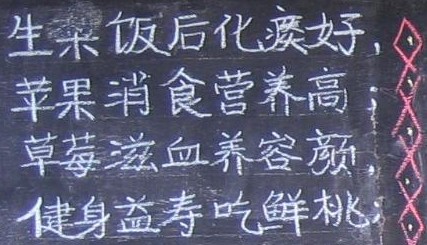 生梨饭后化痰好,
苹果消食营养高;
草莓滋血养容颜,
健身益寿吃鲜桃;